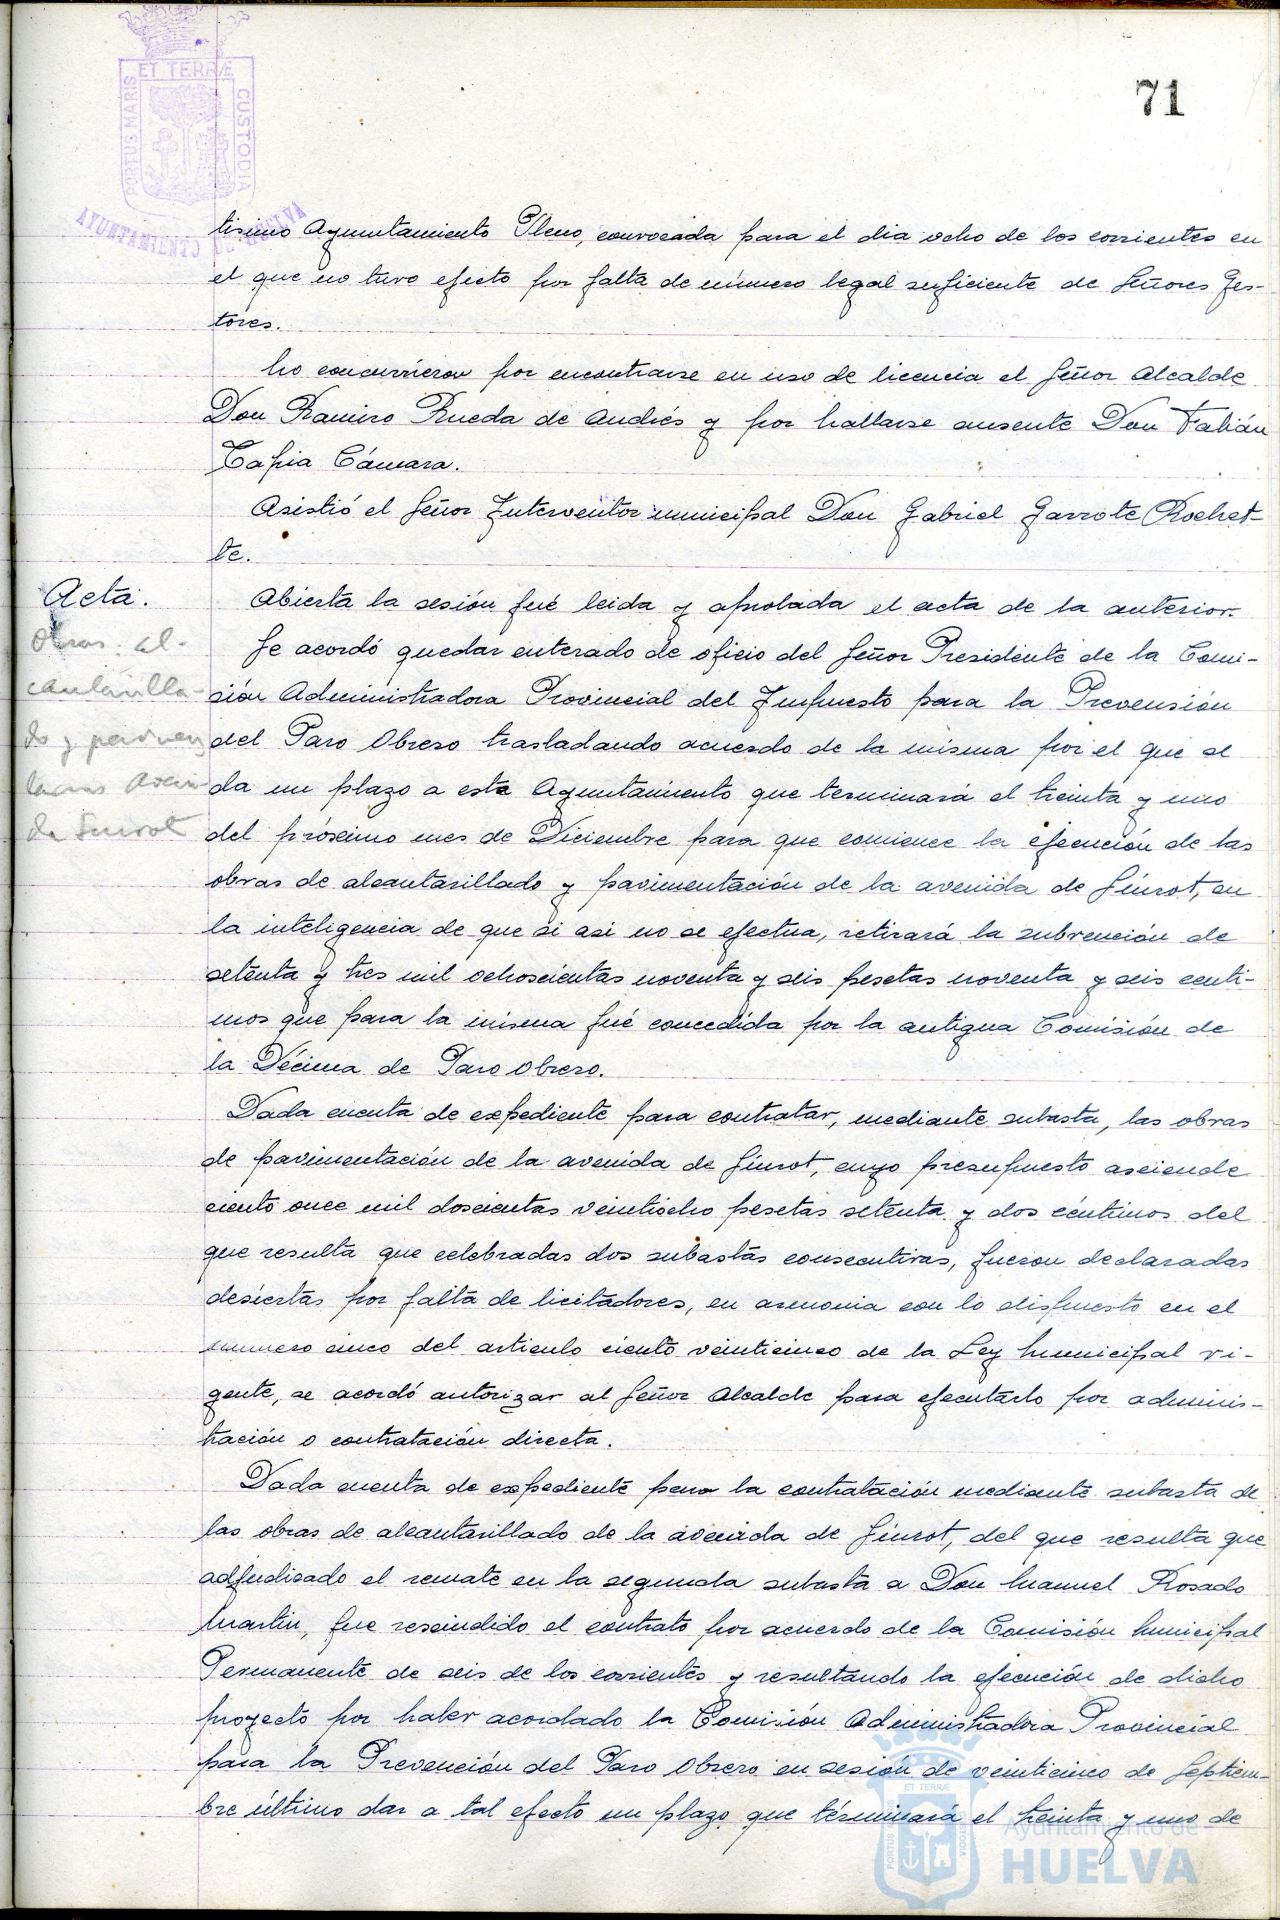 71
ET TERRÆ
PORTUS MARIS
CUSTODIA
AYUNTAMIENTO DE HUELVA
tisimo Ayuntamiento Pleno, convocada para el dia ocho de los corrientes en
el que no tuvo efecto por falta de número legal suficiente de Señores Ges-
tores.
No concurrieron por encontrarse en uso de licencia el Señor Alcalde
Don Ramiro Rueda de Andrés y por hallarse ausente Don Fabián
Tapia Cámara.
Asistió el Señor Interventor municipal Don Gabriel Garrote Rochet-
te.
Acta.
Abierta la sesión fué leida y aprobada el acta de la anterior.
Obras: al-
cantarilla-
do y pavimen
tación Aveni
da Sinrot
Se acordó quedar enterado de oficio del Señor Presidente de la Comi-
sión Administradora Provincial del Impuesto para la Prevensión
del Paro Obrero trasladando acuerdo de la misma por el que se
da un plazo a este Ayuntamiento que terminará el treinta y uno
del próximo mes de Diciembre para que comience la ejecución de las
obras de alcantarillado y pavimentación de la avenida de Sinrot, en
la inteligencia de que si asi no se efectua, retirará la subvención de
setenta y tres mil ochoscientas noventa y seis pesetas noventa y seis centi-
mos que para la misma fué concedida por la antigua Comisión de
la Décima de Paro Obrero.
Dada cuenta de expediente para contratar, mediante subasta, las obras
de pavimentación de la avenida de Sinrot, cuyo presupuesto asciende
ciento once mil doscientas veintiocho pesetas setenta y dos céntimos del
que resulta que celebradas dos subastas consecutivas, fueron declaradas
desiertas por falta de licitadores, en armonia con lo dispuesto en el
numero cinco del articulo ciento veinticinco de la Ley Municipal vi-
gente, se acordó autorizar al Señor Alcalde para ejecutarlo por adminis-
tración o contratación directa.
Dada cuenta de expediente para la contratación mediante subasta de
las obras de alcantarillado de la avenida de Sinrot, del que resulta que
adjudicado el remate en la segunda subasta a Don Manuel Rosado
Martin, fue rescindido el contrato por acuerdo de la Comisión Municipal
Permanente de seis de los corrientes y resultando la ejecución de dicho
proyecto por haber acordado la Comisión Administradora Provincial
para la Prevención del Paro Obrero en sesión de veinticinco de Septiem-
bre último dar a tal efecto un plazo que terminará el treinta y uno de
ET TERRÆ
PORTUS MARIS
CUSTODIA
Ayuntamiento de
HUELVA